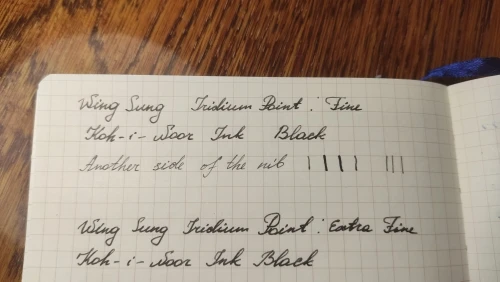 Wing Sung Iridium Point : Fine
Koh-i-Noor Ink Black
Another side of the nib
Wing Sung Iridium Point : Extra Fine
Koh-i-Noor Ink Black